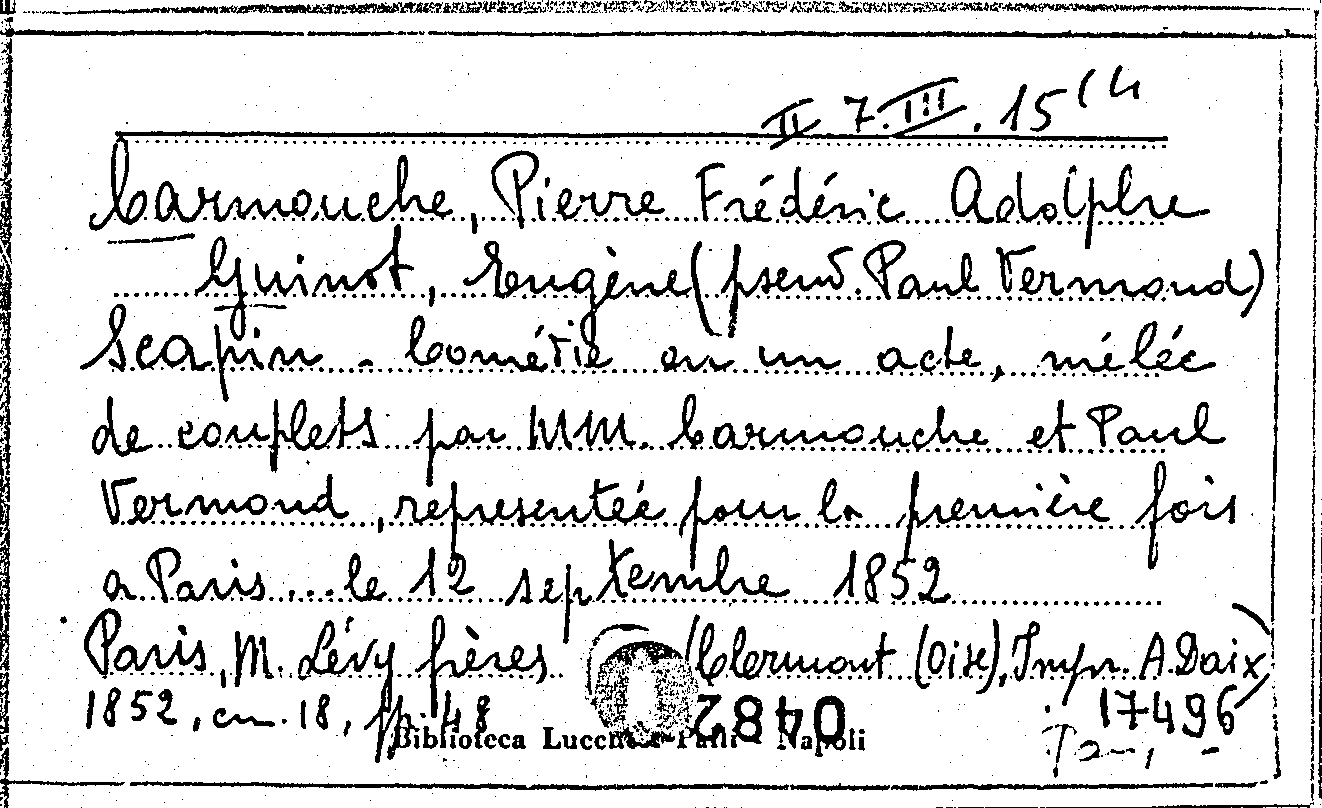 II 7.III.15(4
Carmouche, Pierre Frédéric Adolphe
Guinot, Eugène (pseud. Paul Vermond)
Scapin - Comédie en un acte, mélée
de couplets par MM. Carmouche et Paul
Vermond, representée pour la première fois
a Paris ... le 12 septembre 1852
Paris, M. Lévy frères (Clermont (Oise), Impr. A. Daix)
1852, cm. 18, pp. 48
0482
17496
Biblioteca Lucchesi-Palli - Napoli